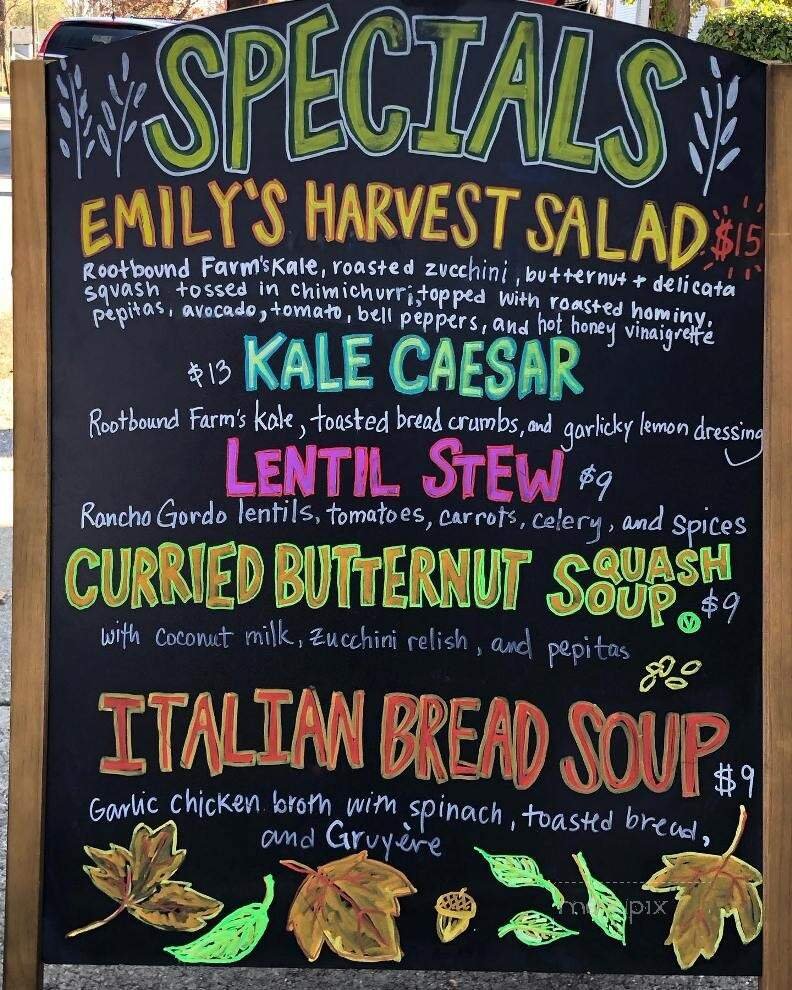 SPECIALS
EMILY'S HARVEST SALAD $15
Rootbound Farm's Kale, roasted zucchini, butternut + delicata
squash tossed in chimichurri, topped with roasted hominy,
pepitas, avocado, tomato, bell peppers, and hot honey vinaigrette
$13 KALE CAESAR
Rootbound Farm's Kale, toasted bread crumbs, and garlicky lemon dressing
LENTIL STEW $9
Rancho Gordo lentils, tomatoes, carrots, celery, and spices
CURRIED BUTTERNUT SQUASH
SOUP V $9
with coconut milk, zucchini relish, and pepitas
ITALIAN BREAD SOUP $9
Garlic chicken broth with spinach, toasted bread,
and Gruyère